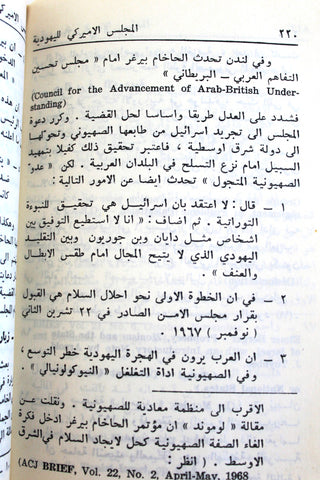 ٢٢٠ المجلس الاميركي لليهودية
وفي لندن تحدث الحاخام بيرغر امام « مجلس تحسين
التفاهم العربي ــ البريطاني »
(Council for the Advancement of Arab-British Under-
standing)
فشدد على العدل طريقا واساسا لحل القضية . وكرر دعوة
المجلس الى تجريد اسرائيل من طابعها الصهيوني وتحولها
الى دولة شرق اوسطية ، فاعتبر تحقيق ذلك كفيلا بتمهيد
السبيل امام نزع التسلح في البلدان العربية . لكن « عدو
الصهيونية المتجول » تحدث ايضا عن الامور التالية :
١ ــ قال : لا اعتقد بان اسرائيل هي تحقيق للنبوءة
التوراتية . ثم اضاف : « انا لا استطيع التوفيق بين
اشخاص مثل دايان وبن جوريون وبين التقليد
اليهودي الذي لا يتيح المجال امام طقس الابطال
والعنف » .
٢ ــ في ان الخطوة الاولى نحو احلال السلام هي القبول
بقرار مجلس الامن الصادر في ٢٢ تشرين الثاني
( نوفمبر ) ١٩٦٧ .
٣ ــ ان العرب يرون في الهجرة اليهودية خطر التوسع ،
وفي الصهيونية اداة التغلغل « النيوكولونيالي » .
الاقرب الى منظمة معادية للصهيونية . ونقلت عن
مقالة « لوموند » ان مؤتمر الحاخام بيرغر ادخل فكرة
الغاء الصفة الصهيونية كحل لايجاد السلام في الشرق
الاوسط . ( انظر :
(ACJ BRIEF, Vol. 22, No. 2, April-May, 1968